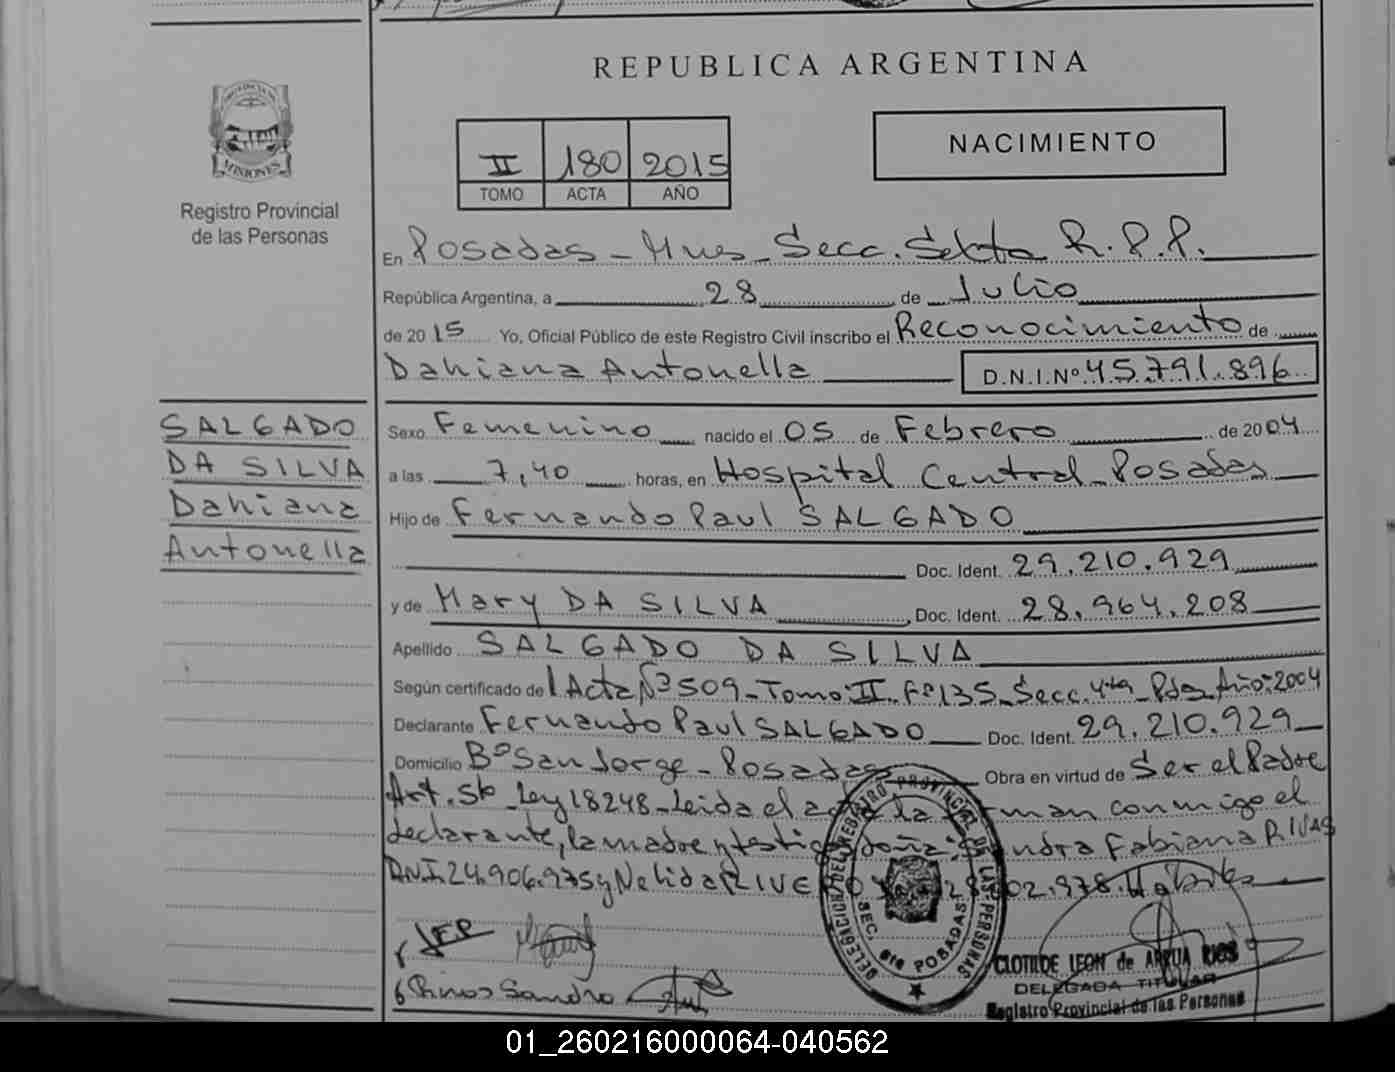 REPUBLICA ARGENTINA
PROVINCIA DE
MISIONES
Registro Provincial
de las Personas
NACIMIENTO
II 180 2015
TOMO ACTA AÑO
En Posadas - Mnes - Secc. Sexta R.P.P.
República Argentina, a 28 de Julio
de 2015 Yo, Oficial Público de este Registro Civil inscribo el Reconocimiento de
Dahiana Antonella D.N.I.Nº 45.791.896
SALGADO
DA SILVA
Dahiana
Antonella
Sexo Femenino nacido el 05 de Febrero de 2004
a las 7,40 horas, en Hospital Central - Posadas
Hijo de Fernando Paul SALGADO
Doc. Ident. 29.210.929
y de Mary DA SILVA Doc. Ident. 28.964.208
Apellido SALGADO DA SILVA
Según certificado de Acta Nº 509 - Tomo II - Fº 135 - Secc. 4ta - Pdas. Año: 2004
Declarante Fernando Paul SALGADO Doc. Ident. 29.210.929
Domicilio Bº San Jorge - Posadas Obra en virtud de Ser el Padre
Art. 5to Ley 18248 - Leida el la firman conmigo el
declarante, la madre y testigos doña: Sandra Fabiana RIVAS
D.N.I. 24.906.975 y Nelida RIVERO .978.
DELEGACION DEL REGISTRO PROVINCIAL DE LAS PERSONAS
SEC. 6ta POSADAS
Sandra
CLOTILDE LEON de ARRUA RIOS
DELEGADA TITULAR
Registro Provincial de las Personas
01_260216000064-040562